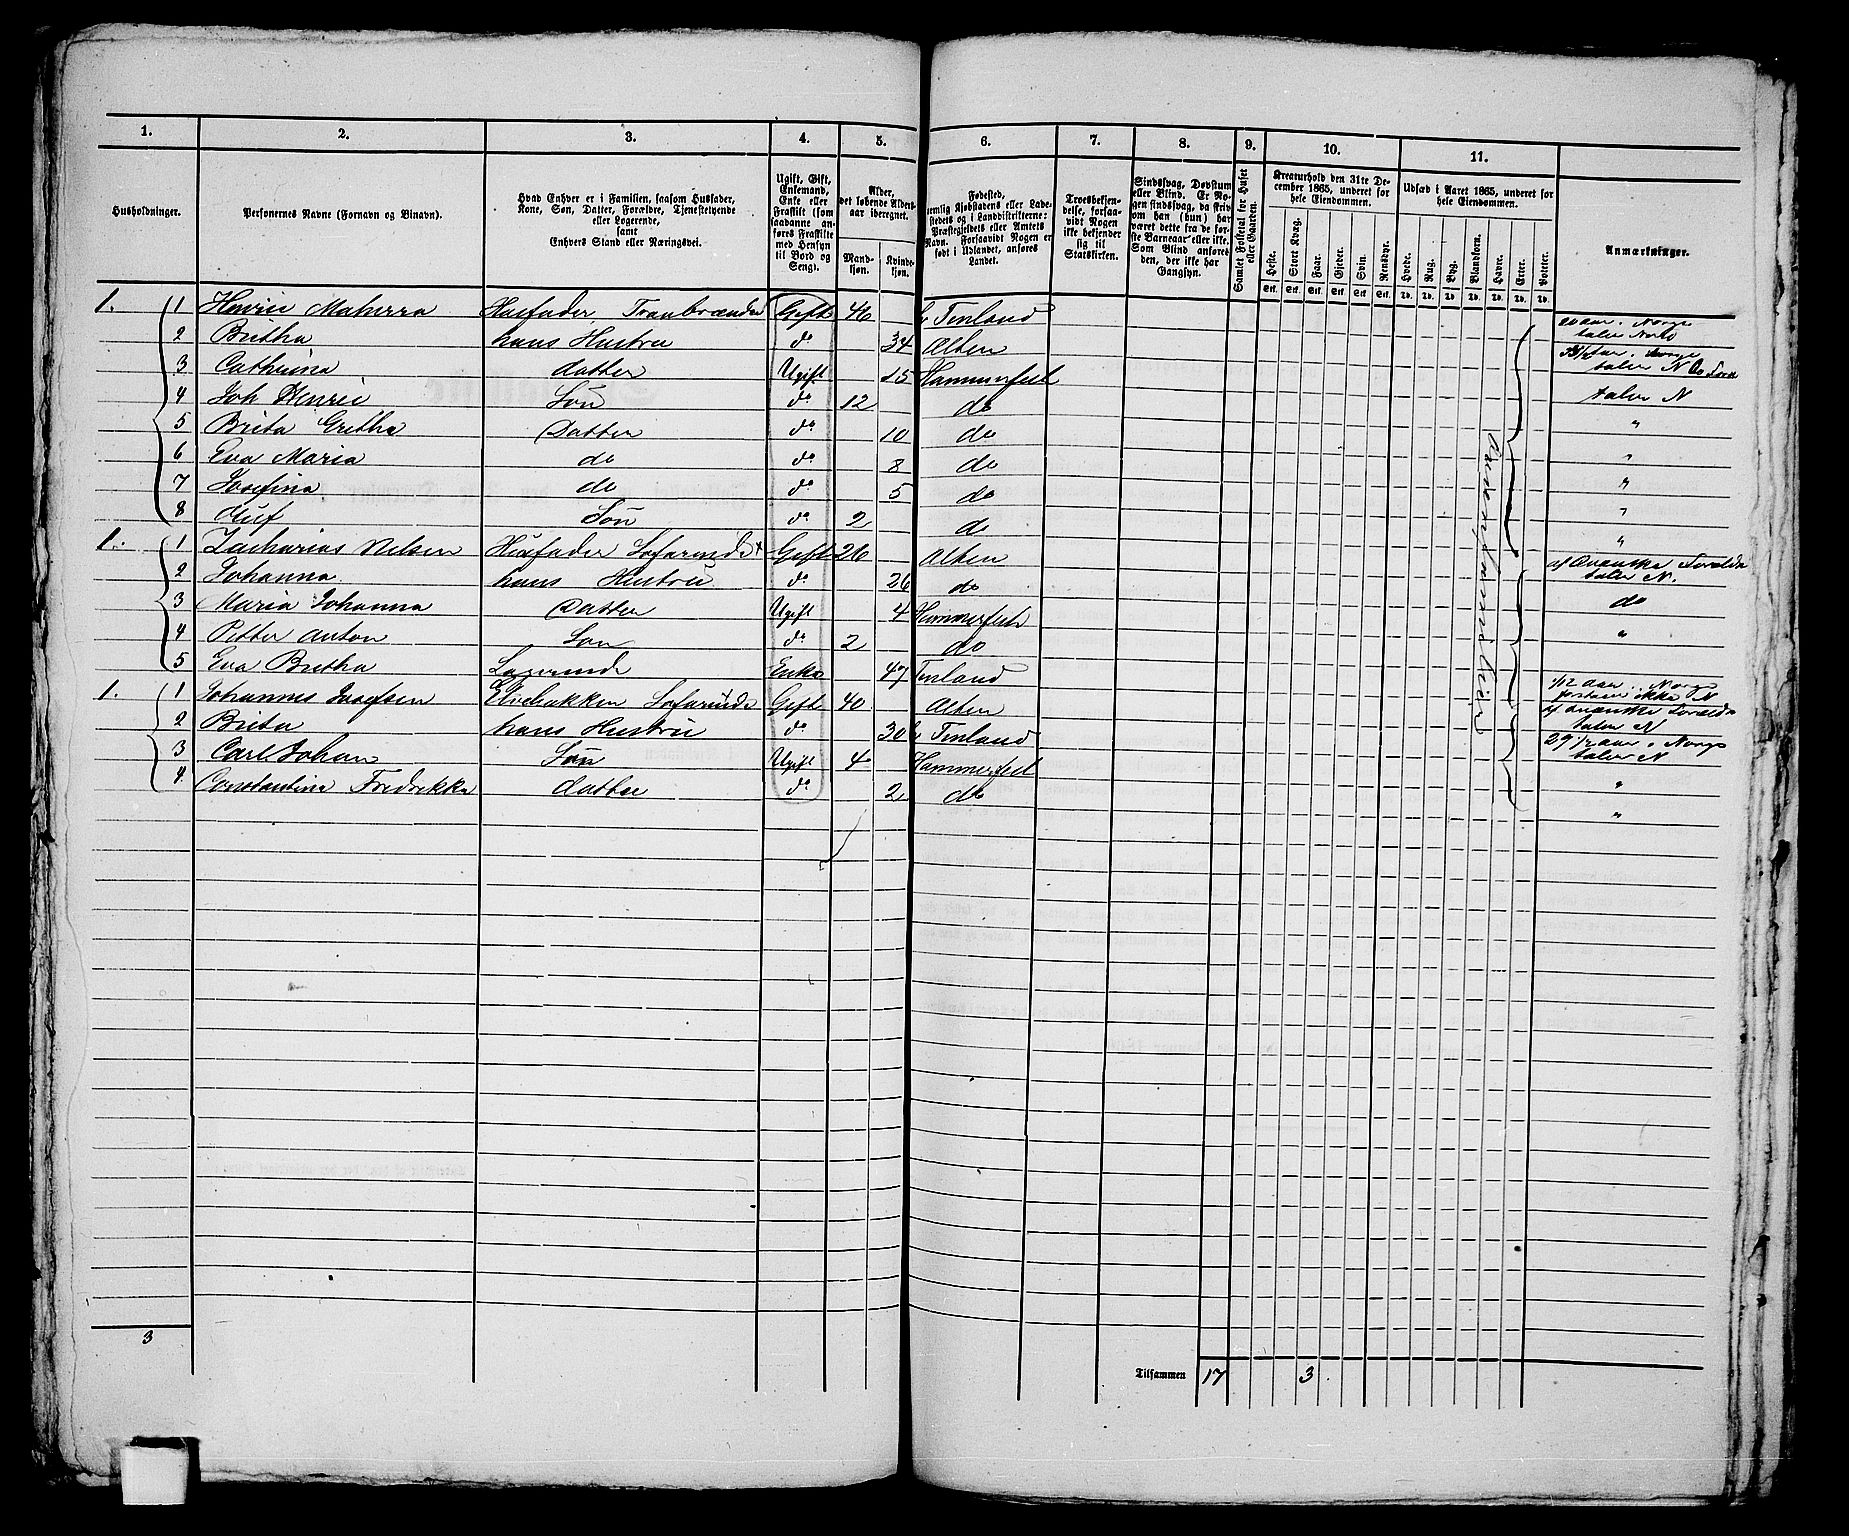 1. 2. 3. 4. 5. 6. 7. 8. 9. 10. 11.
Husholdninger.
Personernes Navne (Fornavn og Binavn).
Hvad Enhver er i Familien, saasom Husfader, Kone, Søn, Datter, Forældre, Tjenestetyende eller Logerende, samt Enhvers Stand eller Næringsvei.
Ugift, Gift, Enkemand, Enke eller Fraskilt (som saadanne anføres Fraskilte med Hensyn til Bord og Seng).
Alder, det løbende Aldersaar iberegnet.
Mandkjøn. Kvindekjøn.
Fødested, nemlig Kjøbstadens eller Ladestedets og i Landdistrikterne: Præstegjeldets eller Amtets Navn. Forsaavidt Nogen er født i Udlandet, anføres Landet.
Troesbekjendelse, forsaavidt Nogen ikke bekjender sig til Statskirken.
Sindssvag, Døvstum eller Blind. Er Nogen sindssvag, da skrives om han (hun) har været dette fra de første Barneaar eller ikke. Som Blind anføres den, der ikke har Gangsyn.
Samlet Folketal for Huset eller Gaarden.
Kreaturhold den 31te December 1865, underet for hele Eiendommen.
Heste. Stort Kvæg. Faar. Gjeder. Svin. Rensdyr.
Stk. Stk. Stk. Stk. Stk. Stk.
Udsæd i Aaret 1865, underet for hele Eiendommen.
Hvede. Rug. Byg. Blandkorn. Havre. Erter. Poteter.
Td. Td. Td. Td. Td. Td. Td.
Anmærkninger.
1. 1 Henric Materra Husfader Gift 46 Finland aar. Norge
2 Britha hans Hustru do 34 Alten taler
3 Cathrina Datter Ugift 15 Hammerfest taler N
4 Joh Henric Søn do 12 do taler N
5 Brita Gretha Datter do 10 do "
6 Eva Maria do do 8 do "
7 Josefina do do 5 do "
8 Oluf Søn do 2 do "
1. 1 Zacharias Nilsen Husfader Gift 26 Alten "
2 Johanna hans Hustru do 26 do taler N.
3 Maria Johanna Datter Ugift 4 Hammerfest do
4 Petter Anton Søn do 2 do "
5 Eva Britha Logerende Enke 47 Finland
1. 1 Johannes Josefsen Gift 40 Alten 1/12 aar. Norge ikke N
2 Brita hans Hustru do 30 Finland taler N
3 Carl Johan Søn Ugift 4 Hammerfest 29 1/2 aar i Norge taler N
4 Constantine Fredrikke Datter do 2 do "
"
3
Tilsammen 17 3